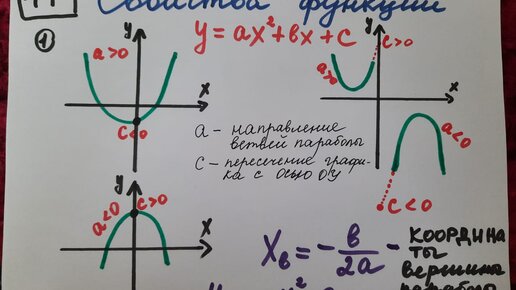 Свойства функции
1
y = ax²+bx+c
a>0
y
x
c<0
y
c>0
a>0
x
a<0
c<0
a – направление
ветвей параболы
c – пересечение графи-
ка с осью ОУ
y
a<0
c>0
x
Xв = – b/2a – координа
ты
вершины